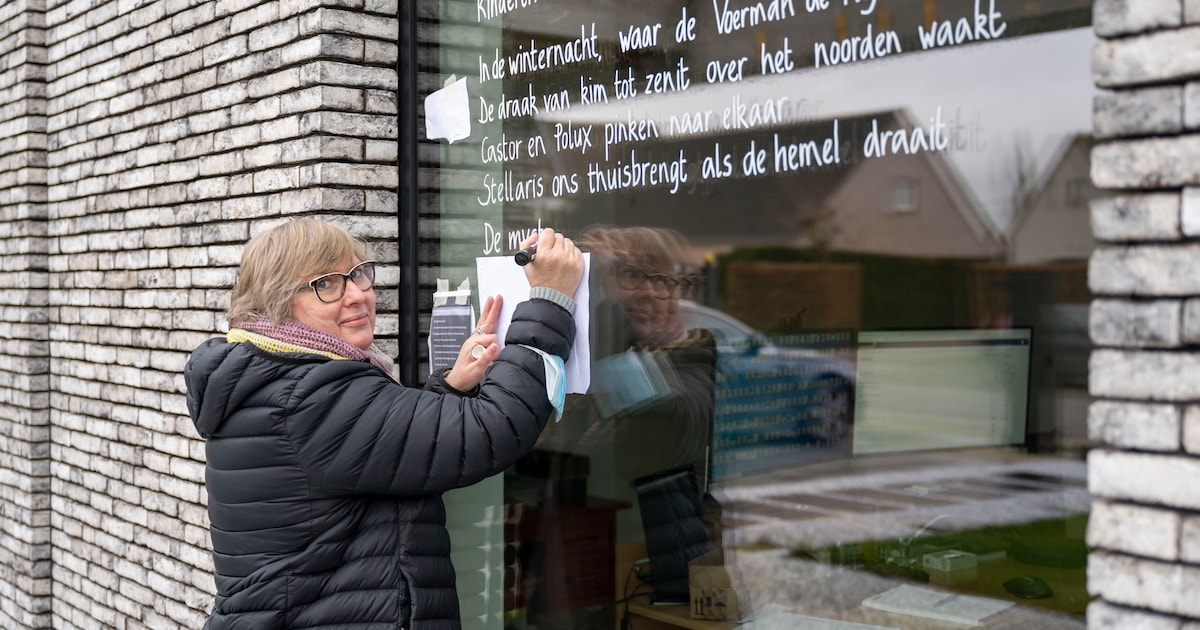 Kinderen
In de winternacht, waar de Voerman de
De draak van kim tot zenit over het noorden waakt
Castor en Polux pinken naar elkaar
Stellaris ons thuisbrengt als de hemel draait
De